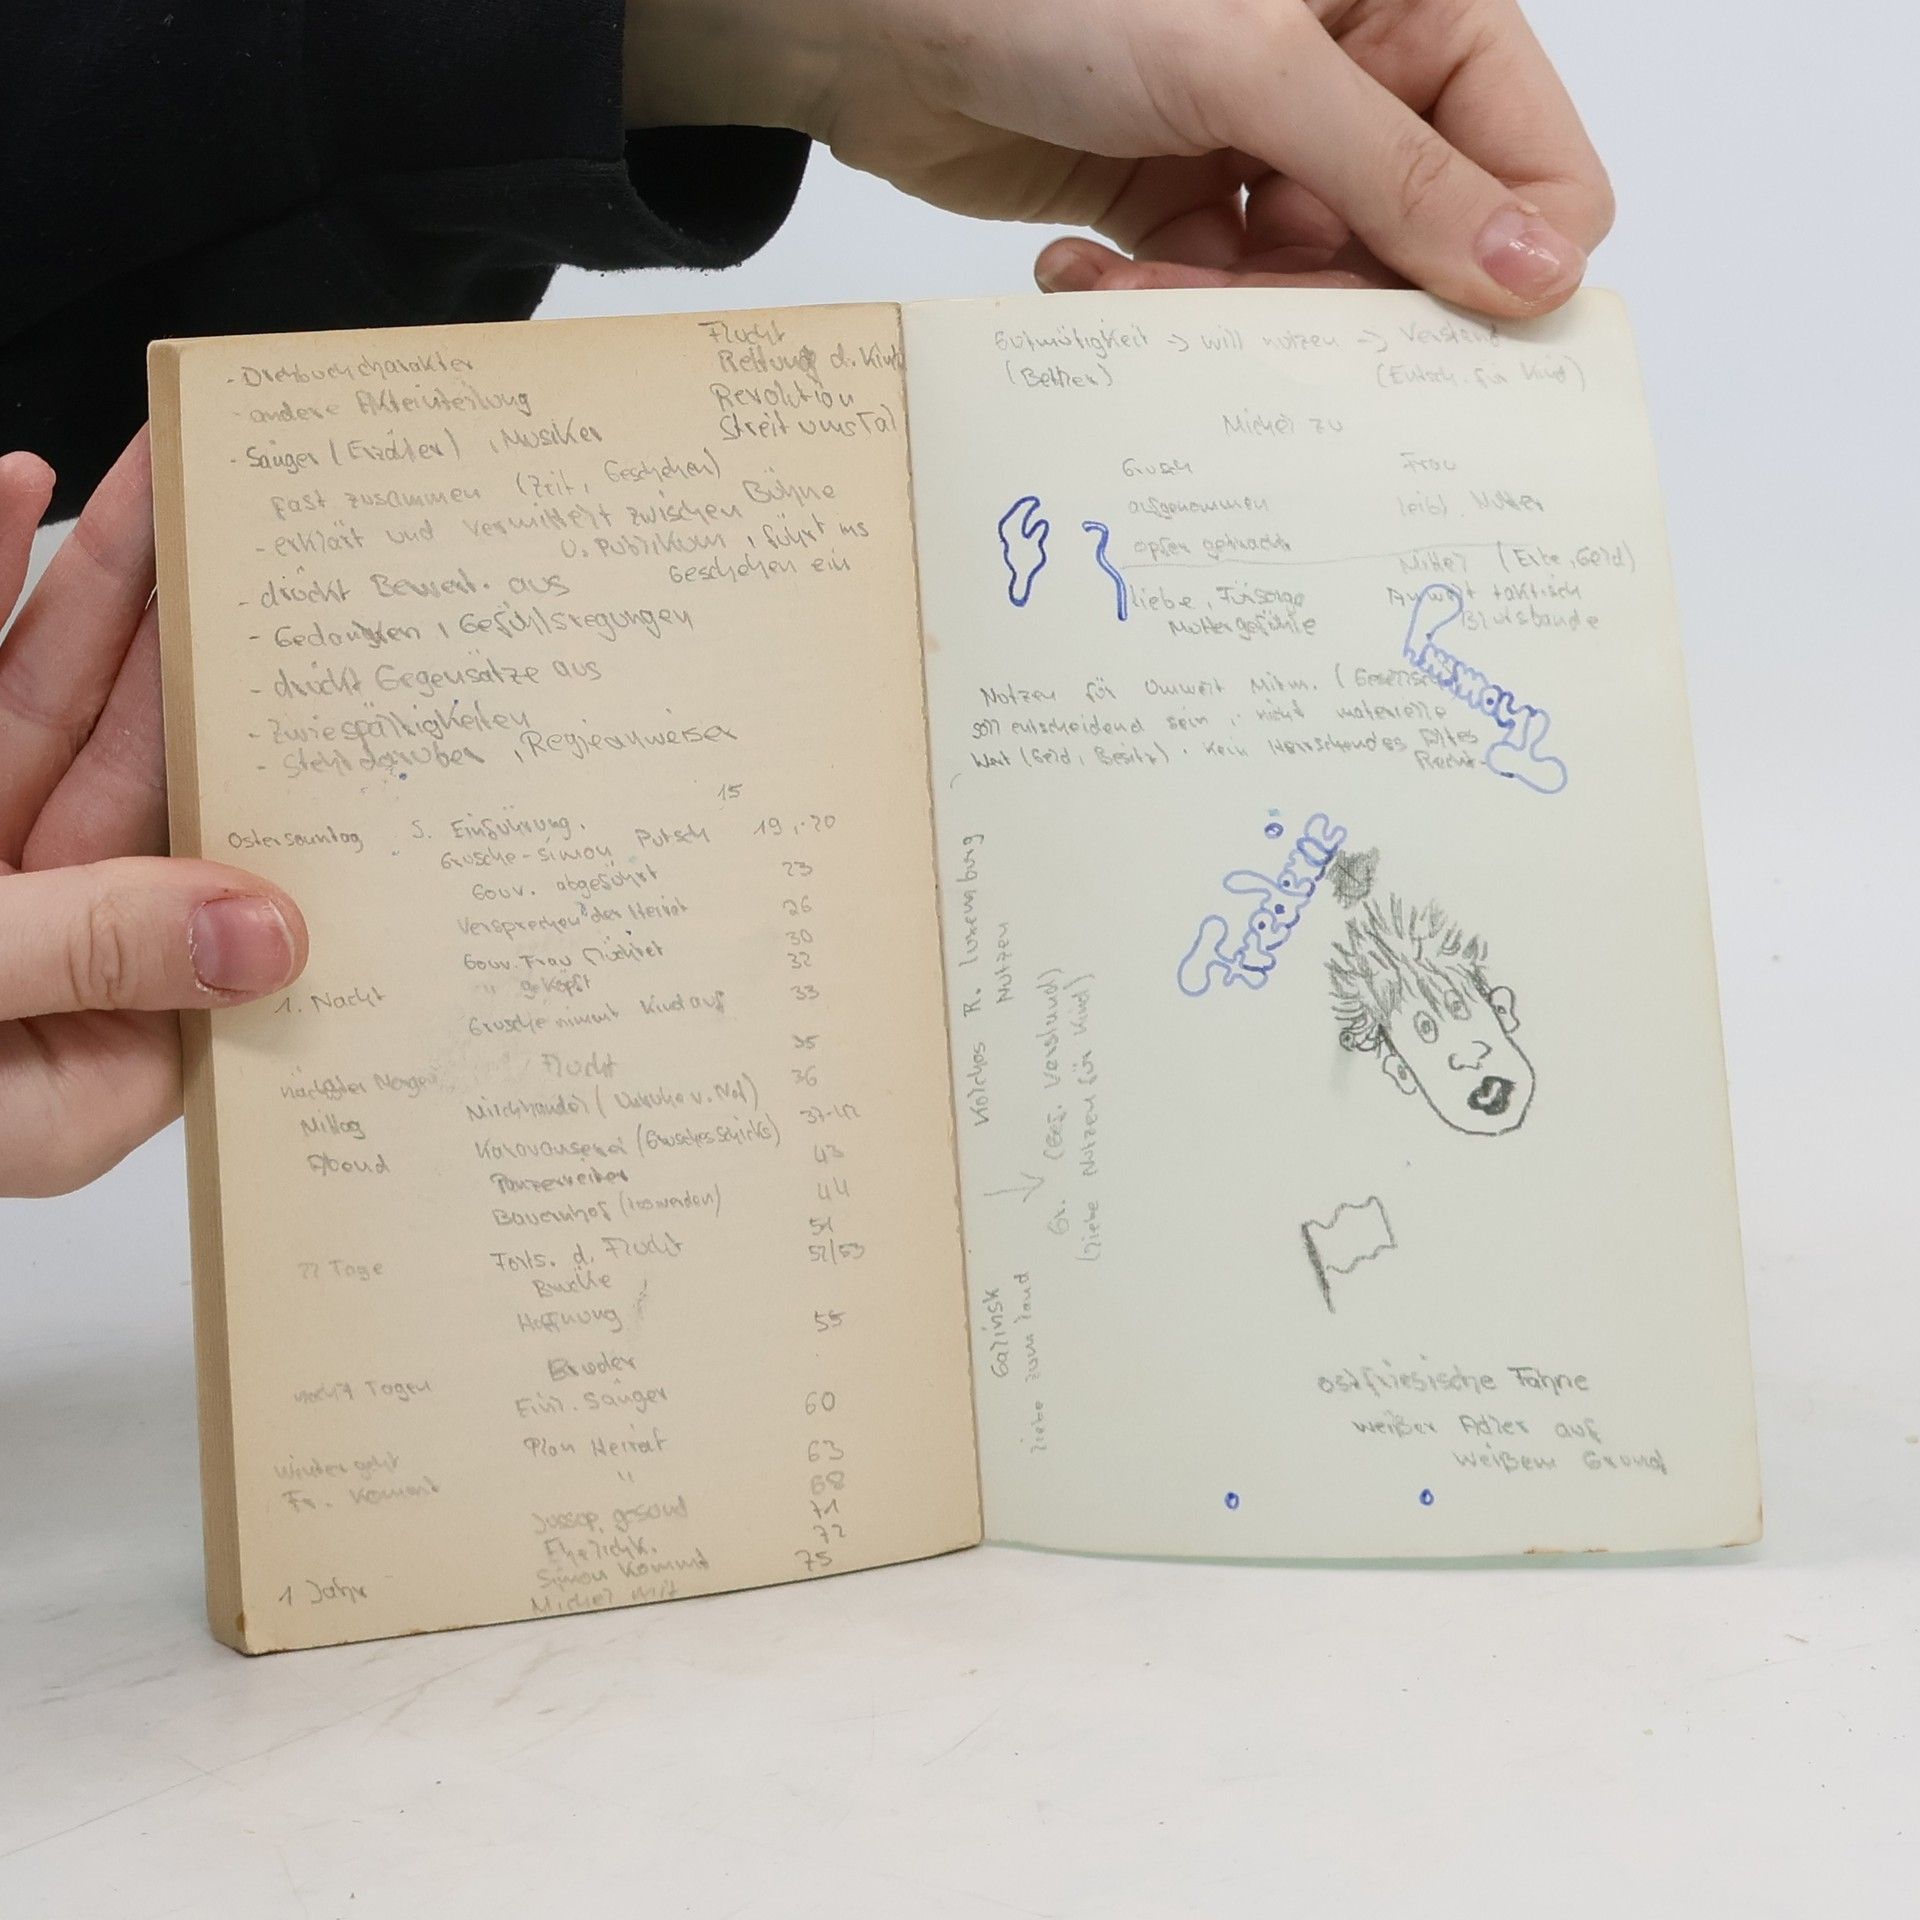 Flucht
- Drehbuchcharakter
Rettung d. Kind
- andere Akteinteilung
Revolution
- Sänger (Erzähler), Musiker
Streit ums Tal
fast zusammen (Zeit, Geschehen)
- erklärt und vermittelt zwischen Bühne
u. Publikum, führt ins
Geschehen ein
- drückt Bewert. aus
- Gedanken, Gefühlsregungen
- drückt Gegensätze aus
- Zwiespältigkeiten
- steht darüber, Regieanweiser
15
Ostersonntag S. Einführung.
Grusche-Simon Putsch 19,-20
Gouv. abgeführt 23
Versprechen der Heirat 26
Gouv. Frau flüchtet 30
" geköpft 32
1. Nacht Grusche nimmt Kind auf 33
Flucht 35
nächster Morgen 36
Mittag Milchhandel
Abend Karavanserei 37-42
Panzerreiter 43
Bauernhof (loswerden) 44
Forts. d. Flucht 51
22 Tage Brücke 52/53
Hoffnung 55
nach 7 Tagen Bruder
Einl. Sänger 60
Plan Heirat 63
Winter geht " 68
Fr. kommt
Jussup. gesund 71
72
Simon kommt 75
1 Jahr Michel mit
Gutmütigkeit -> will nutzen -> Verstand
(Entsch. für Kind)
Michel zu
Grusch Frau
aufgenommen leibl. Mutter
opfer gebracht
Mittel (Erbe, Geld)
liebe, Fürsorge Anwalt taktisch
Muttergefühle Blutsbande
Nutzen für Umwelt Mitm.
soll entscheidend sein, nicht materielle
Wert (Geld, Besitz). Kein Herrschendes altes
Recht
Kolchos R. Luxemburg
Nutzen
Galinsk
liebe zum Land
Gr. (Gef. Verstand)
(liebe Nutzen für Kind)
ostfriesische Fahne
weißer Adler auf
weißem Grund